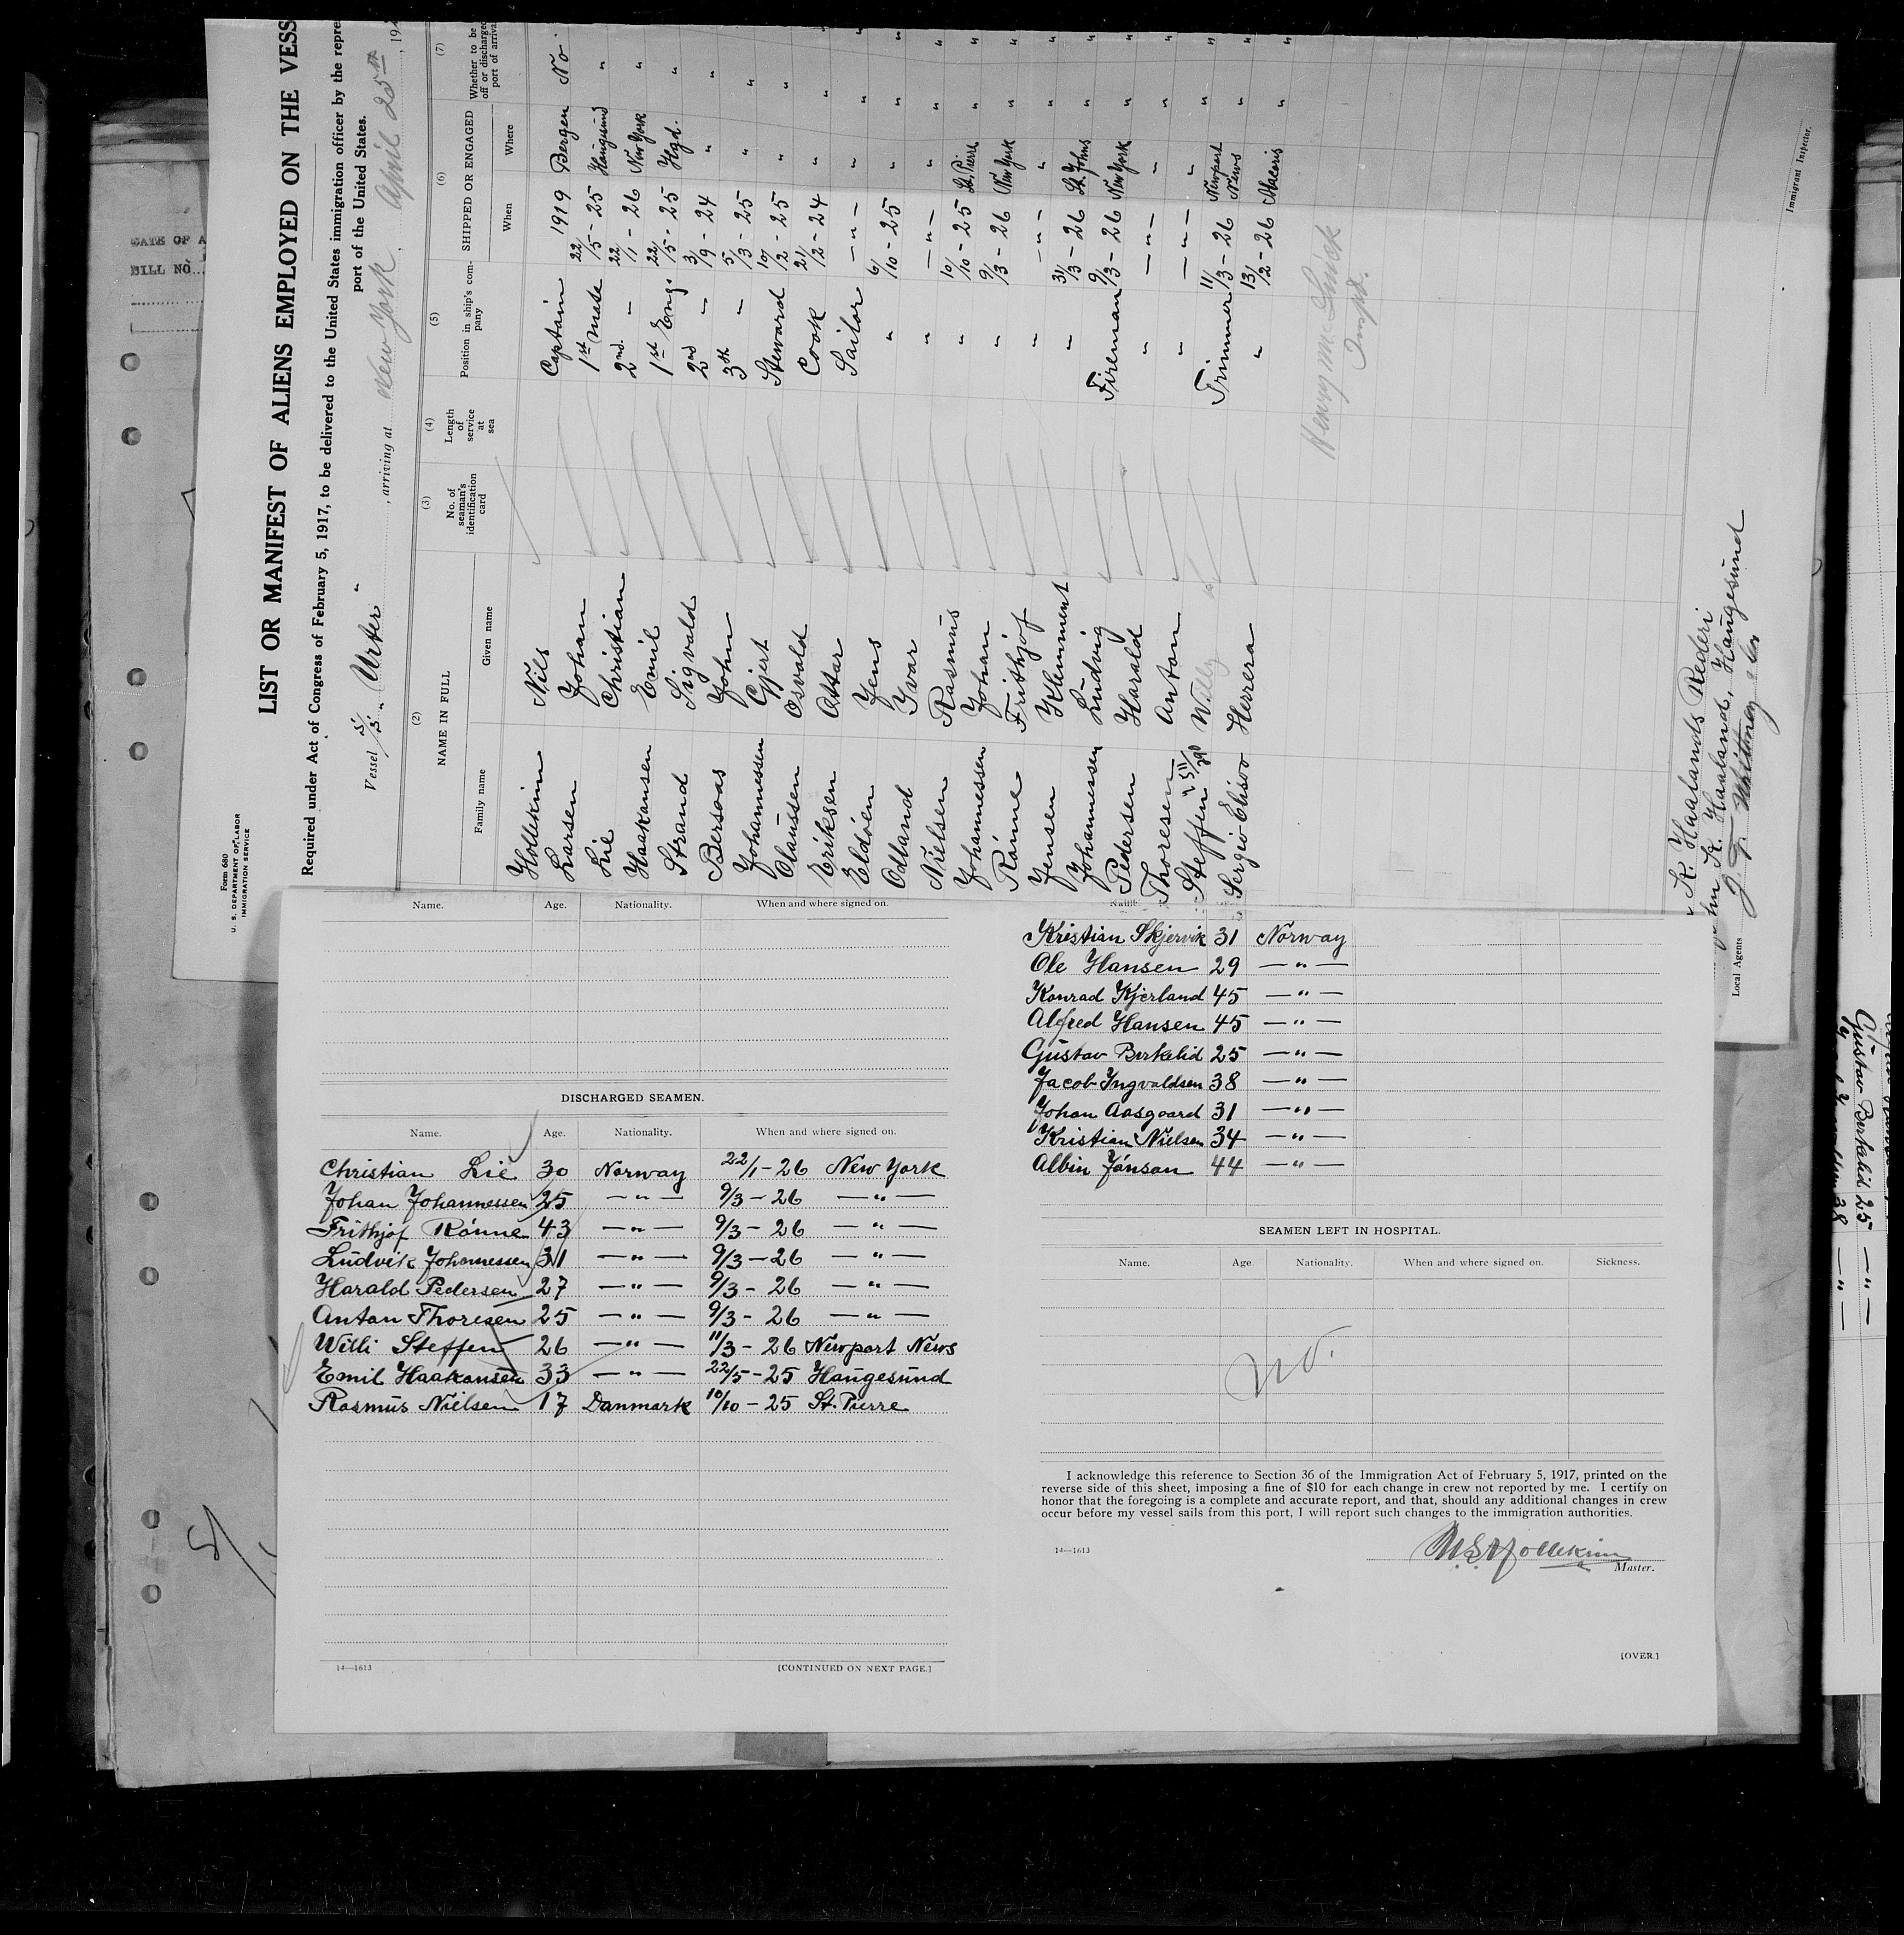 Form 680
U. S. DEPARTMENT OF LABOR
IMMIGRATION SERVICE
LIST OR MANIFEST OF ALIENS EMPLOYED ON THE VESS
Required under Act of Congress of February 5, 1917, to be delivered to the United States immigration officer by the repre
port of the United States.
Vessel S/S. "Urter" , arriving at New York. April 25th , 192
(2) (3) (4) (5) (6) (7)
NAME IN FULL No. of seaman's identification card Length of service at sea Position in ship's company SHIPPED OR ENGAGED Whether to be off or discharged port of arrival
Family name Given name When Where
Hollekim Nils Captain 1919 Bergen No.
Larsen Johan 1st Mate 22/5 - 25 Haugesund "
Lie Christian 2nd. — 22/1 - 26 New York "
Haakansen Emil 1st Eng. 22/5 - 25 Hgd. "
Strand Sigvald 2nd — 3/9 - 24 " "
Bersaas John 3th — 5/3 - 25 " "
Johannessen Gjert Steward 10/2 - 25 " "
Olaussen Osvald Cook 21/2 - 24 " "
Eriksen Ottar Sailor — " — " "
Eldöen Jens " 6/10 - 25 " "
Odland Ivar " — " — " "
Nielsen Rasmus " 10/10 - 25 St. Pierre "
Johannessen Johan " 9/3 - 26 New York "
Rönne Frithjof " — " — " "
Jensen Klemment " 31/3 - 26 St. Johns "
Johannessen Ludvig Fireman 9/3 - 26 New York "
Pedersen Harald " — " — " "
Thoresen Anton " — " — " "
Steffen Willy Trimmer 11/3 - 26 Newport News "
Sergio Elisoo Herrera " 13/2 - 26 "
Henry
Inspr.
K. Haalands Rederi
K. Haaland, Haugesund
Local Agents J. F. Whitney & Co
Immigrant Inspector.
DATE OF A
BILL NO.
Name. Age. Nationality. When and where signed on.
DISCHARGED SEAMEN.
Name. Age. Nationality. When and where signed on.
Christian Lie 30 Norway 22/1 - 26 New York
Johan Johannessen 25 — " — 9/3 - 26 — " —
Frithjof Rönne 43 — " — 9/3 - 26 — " —
Ludvik Johannessen 31 — " — 9/3 - 26 — " —
Harald Pedersen 27 — " — 9/3 - 26 — " —
Anton Thoresen 25 — " — 9/3 - 26 — " —
Willi Steffen 26 — " — 11/3 - 26 Newport News
Emil Haakansen 33 — " — 22/5 - 25 Haugesund
Rasmus Nielsen 17 Danmark 10/10 - 25 St. Pierre
14—1613
[CONTINUED ON NEXT PAGE.]
Kristian Skjervik 31 Norway
Ole Hansen 29 — " —
Konrad Kjerland 45 — " —
Alfred Hansen 45 — " —
Gustav Birkelid 25 — " —
Jacob Ingvaldsen 38 — " —
Johan Aasgaard 31 — " —
Kristian Nielsen 34 — " —
Albin Jönson 44 — " —
SEAMEN LEFT IN HOSPITAL.
Name. Age. Nationality. When and where signed on. Sickness.
no.
I acknowledge this reference to Section 36 of the Immigration Act of February 5, 1917, printed on the
reverse side of this sheet, imposing a fine of $10 for each change in crew not reported by me. I certify on
honor that the foregoing is a complete and accurate report, and that, should any additional changes in crew
occur before my vessel sails from this port, I will report such changes to the immigration authorities.
14—1613
N.S. Hollekim
Master.
[OVER.]
Gustav Birkelid 25 — " —
38 — " —